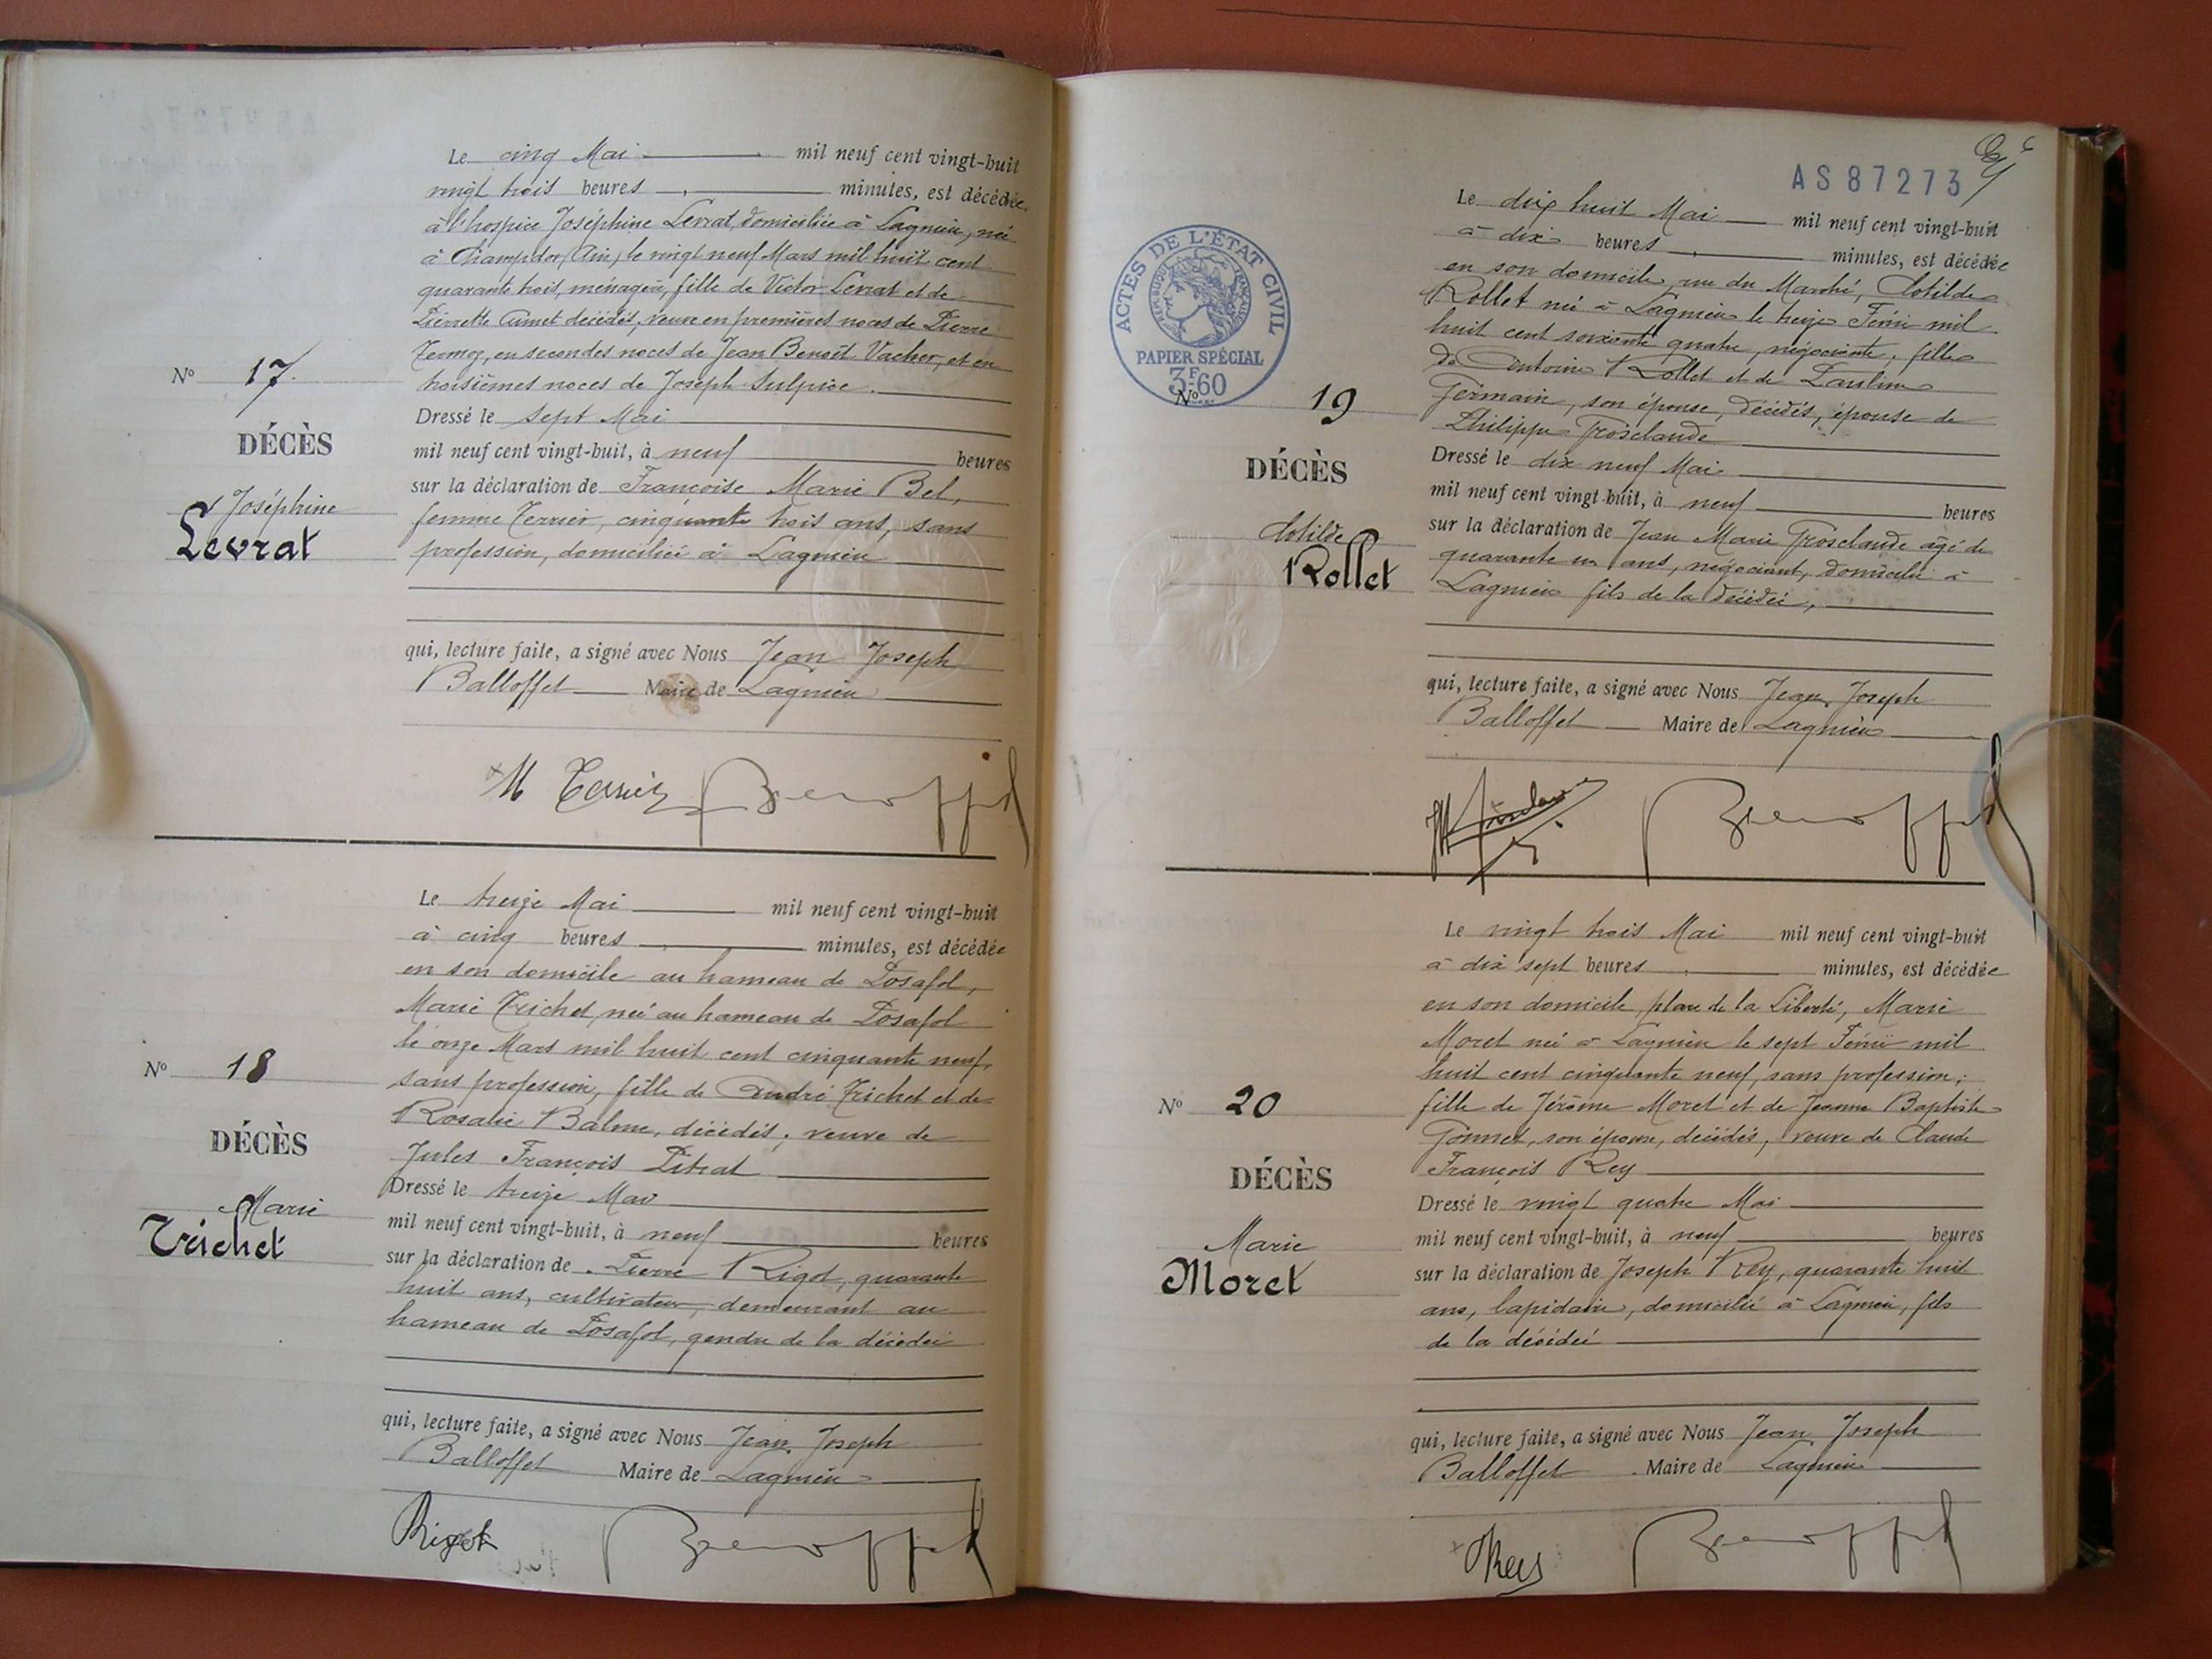 Le cinq Mai mil neuf cent vingt-huit
vingt trois heures minutes, est décédée
à l'hospice Joséphine Levrat, domiciliée à Lagnieu, née
à Champdor (Ain) le vingt neuf Mars mil huit cent
quarante trois, ménagère, fille de Victor Levrat et de
Pierrette Aimet décédés, veuve en premières noces de Pierre
en secondes noces de Jean Benoît Vacher, et en
troisièmes noces de Joseph Sulpice.
Nº 17
DÉCÈS
Joséphine
Levrat
Dressé le sept Mai
mil neuf cent vingt-huit, à neuf heures
sur la déclaration de Françoise Marie Bel,
femme Terrier, cinquante trois ans, sans
profession, domiciliée à Lagnieu
qui, lecture faite, a signé avec Nous Jean Joseph
Balloffet Maire de Lagnieu
M Terrier Balloffet
Le treize Mai mil neuf cent vingt-huit
à cinq heures minutes, est décédée
en son domicile au hameau de Posafol,
Marie Trichet, née au hameau de Posafol
le onze Mars mil huit cent cinquante neuf,
sans profession, fille de André Trichet et de
Rosalie Balme, décédés, veuve de
Jules François Pitrat
Nº 18
DÉCÈS
Marie
Trichet
Dressé le treize Mai
mil neuf cent vingt-huit, à neuf heures
sur la déclaration de Pierre Rigot, quarante
huit ans, cultivateur, demeurant au
hameau de Posafol, gendre de la décédée
qui, lecture faite, a signé avec Nous Jean Joseph
Balloffet Maire de Lagnieu
Rigot Balloffet
AS 87273
ACTES DE L'ÉTAT CIVIL
PAPIER SPÉCIAL
3F60
Le dix huit Mai mil neuf cent vingt-huit
à dix heures minutes, est décédée
en son domicile, rue du Marché, Clotilde
Rollet née à Lagnieu le treize Février mil
huit cent soixante quatre, négociante, fille
de Antoine Rollet et de Pauline
Germain, son épouse, décédés, épouse de
Philippe Grosclaude
Nº 19
DÉCÈS
Clotilde
Rollet
Dressé le dix neuf Mai
mil neuf cent vingt-huit, à neuf heures
sur la déclaration de Jean Marie Grosclaude âgé de
quarante un ans, négociant, domicilié à
Lagnieu fils de la décédée,
qui, lecture faite, a signé avec Nous Jean Joseph
Balloffet Maire de Lagnieu
Balloffet
Le vingt trois Mai mil neuf cent vingt-huit
à dix sept heures minutes, est décédée
en son domicile, place de la Liberté, Marie
Moret née à Lagnieu le sept Février mil
huit cent cinquante neuf, sans profession;
fille de Jérôme Moret et de Jeanne Baptiste
Gonnet, son épouse, décédés, veuve de Claude
François Rey
Nº 20
DÉCÈS
Marie
Moret
Dressé le vingt quatre Mai
mil neuf cent vingt-huit, à neuf heures
sur la déclaration de Joseph Rey, quarante huit
ans, lapidaire, domicilié à Lagnieu, fils
de la décédée
qui, lecture faite, a signé avec Nous Jean Joseph
Balloffet Maire de Lagnieu
Rey Balloffet